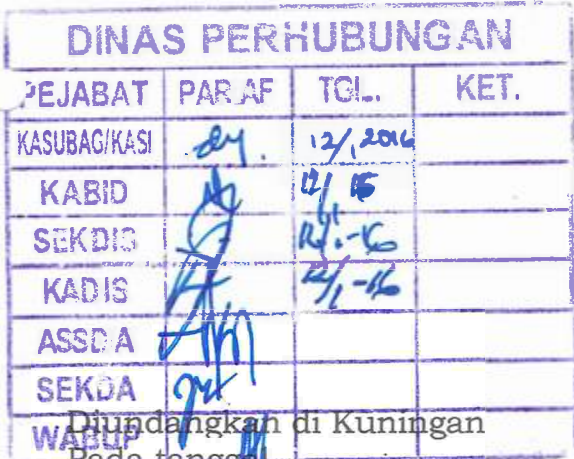 DINAS PERHUBUNGAN
PEJABAT PARAF TGL. KET.
KASUBAG/KASI 12/1 2016
KABID
SEKDIS
KADIS 12/1-16
ASSDA
SEKDA
Diundangkan di Kuningan
WABUP
Pada tanggal